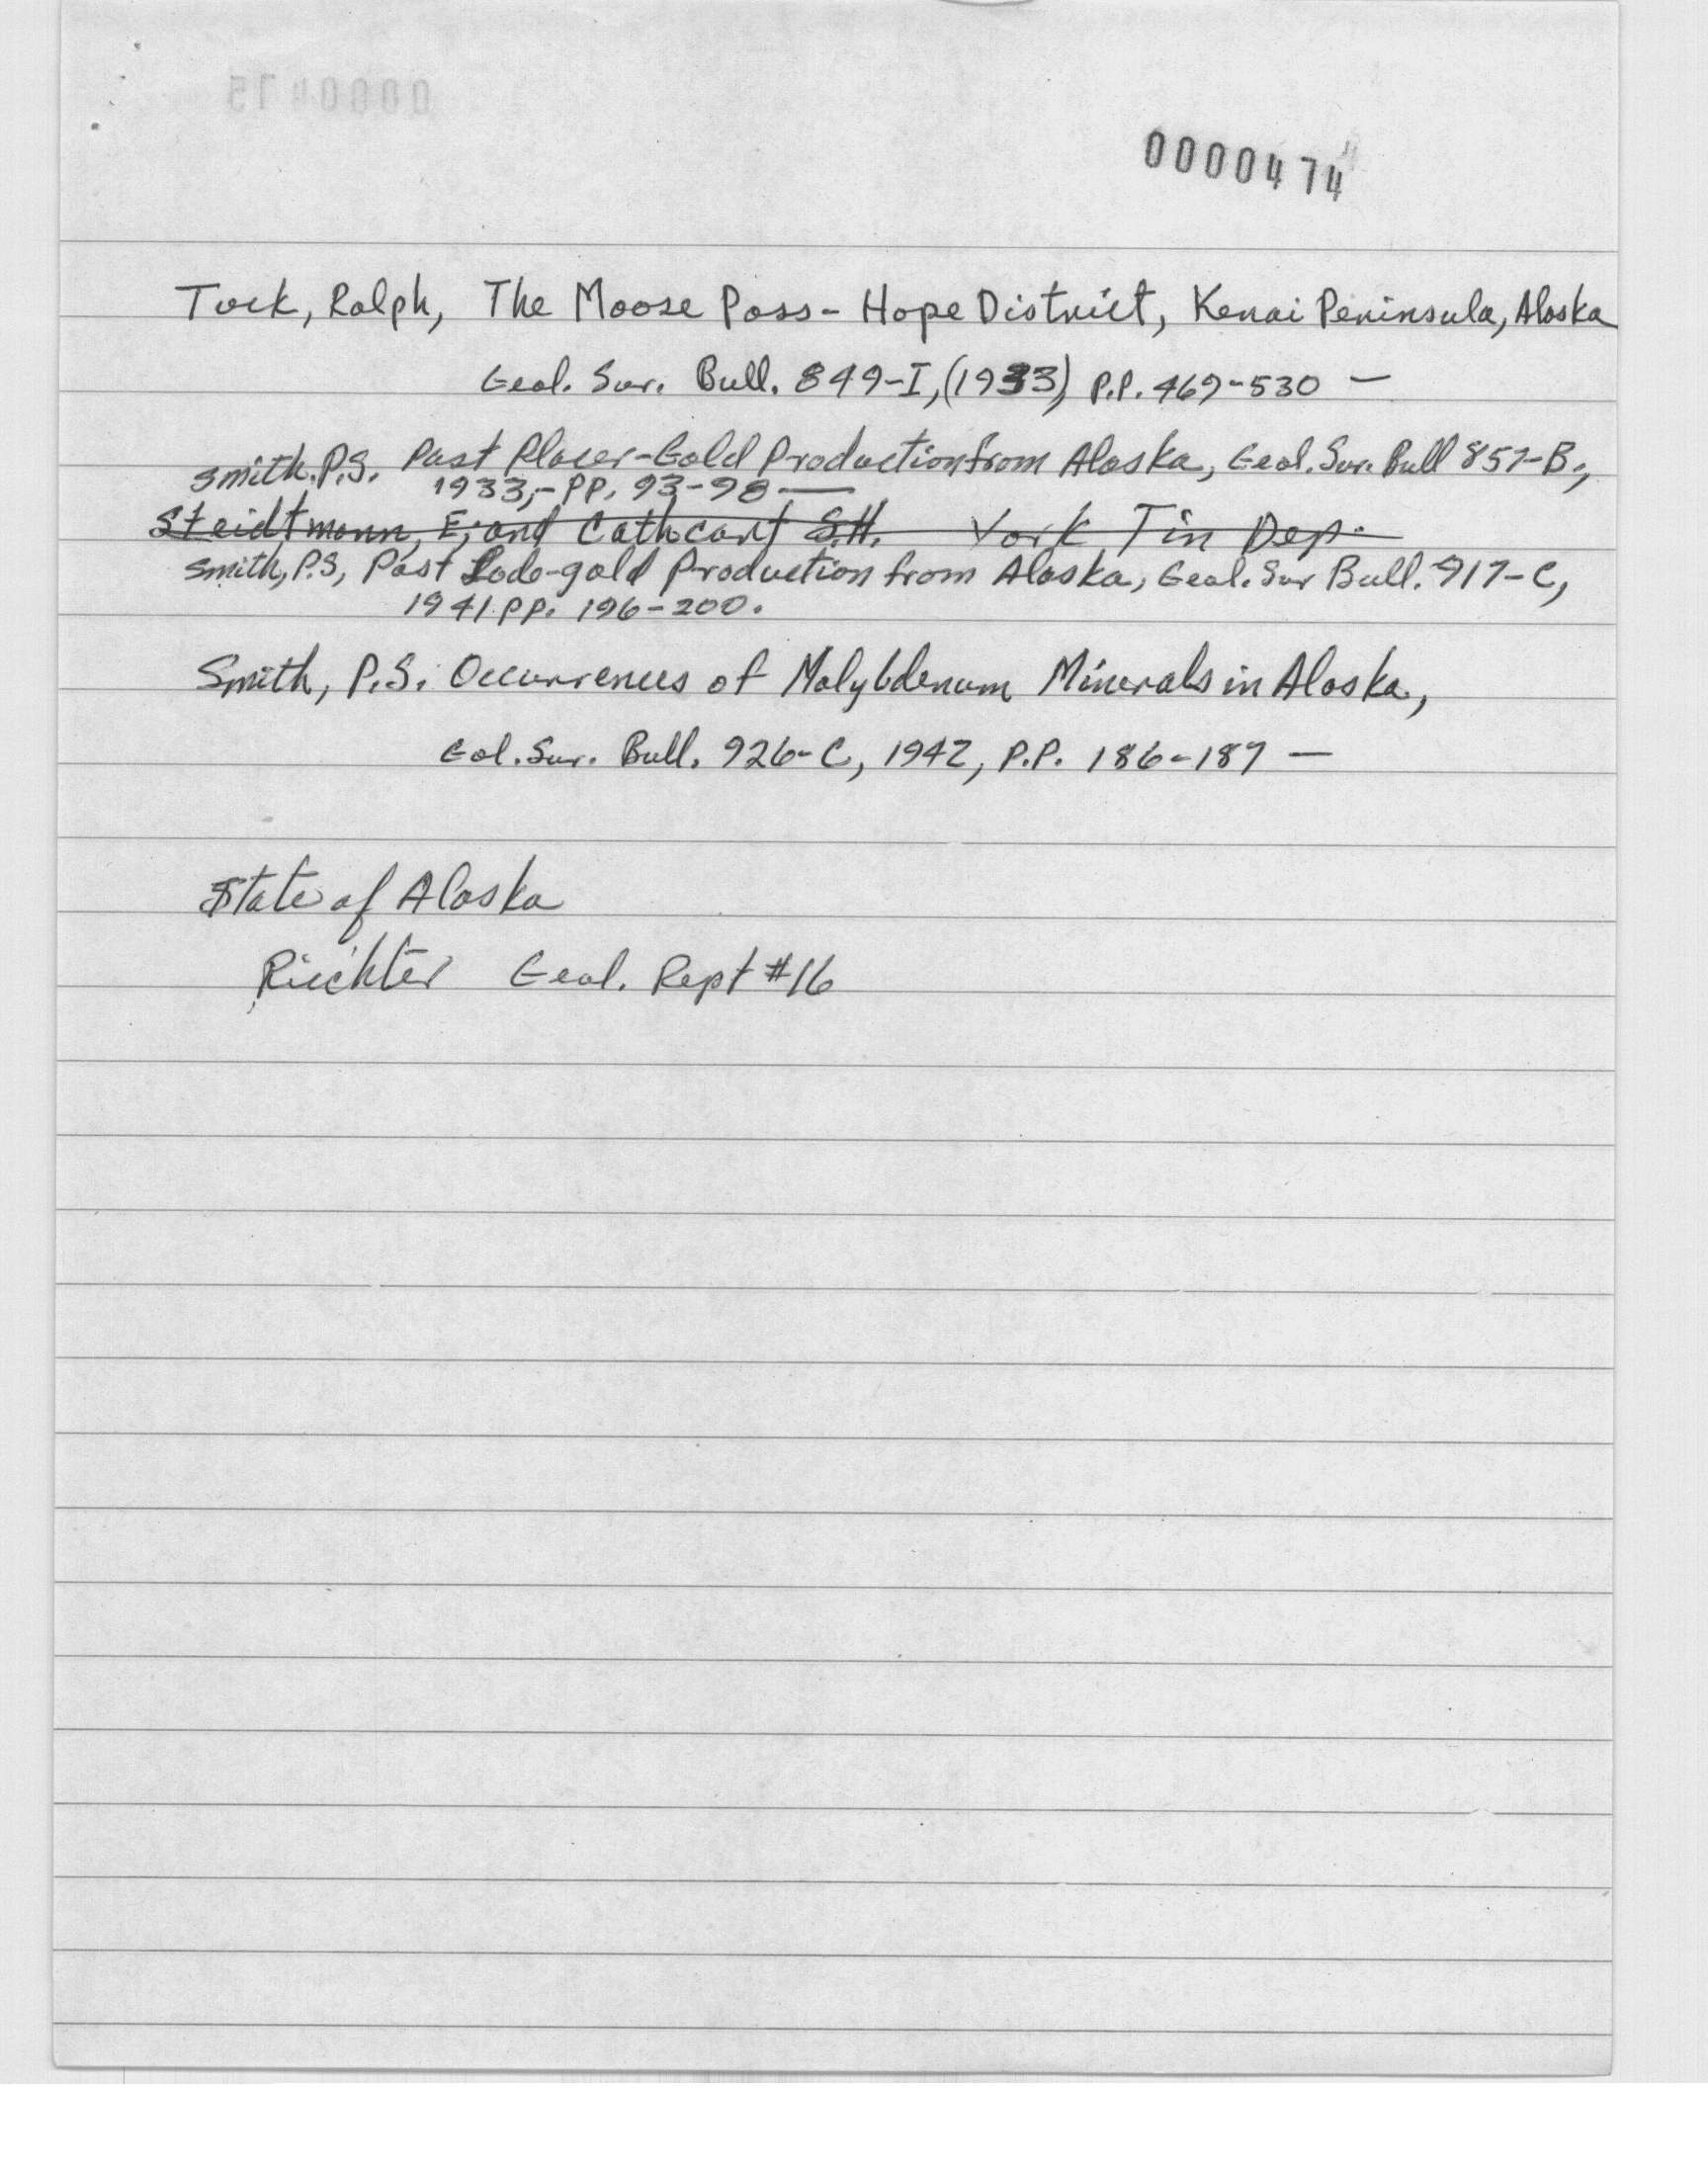 0000475
0000474
Tuck, Ralph, The Moose Pass - Hope District, Kenai Peninsula, Alaska
Geol. Sur. Bull. 849-I, (1933) P.P. 469-530 —
Smith, P.S. Past Placer-Gold Production from Alaska, Geol. Sur. Bull 857-B.,
1933, - PP. 93-98 —
Steidtmann, E, and Cathcart S.H. York Tin Dep.
Smith, P.S, Past Lode-gold Production from Alaska, Geol. Sur Bull. 917-C,
1941 PP. 196-200.
Smith, P.S. Occurrences of Molybdenum Minerals in Alaska,
Gol. Sur. Bull. 926-C, 1942, P.P. 186-187 —
State of Alaska
Riichter Geol. Rept #16